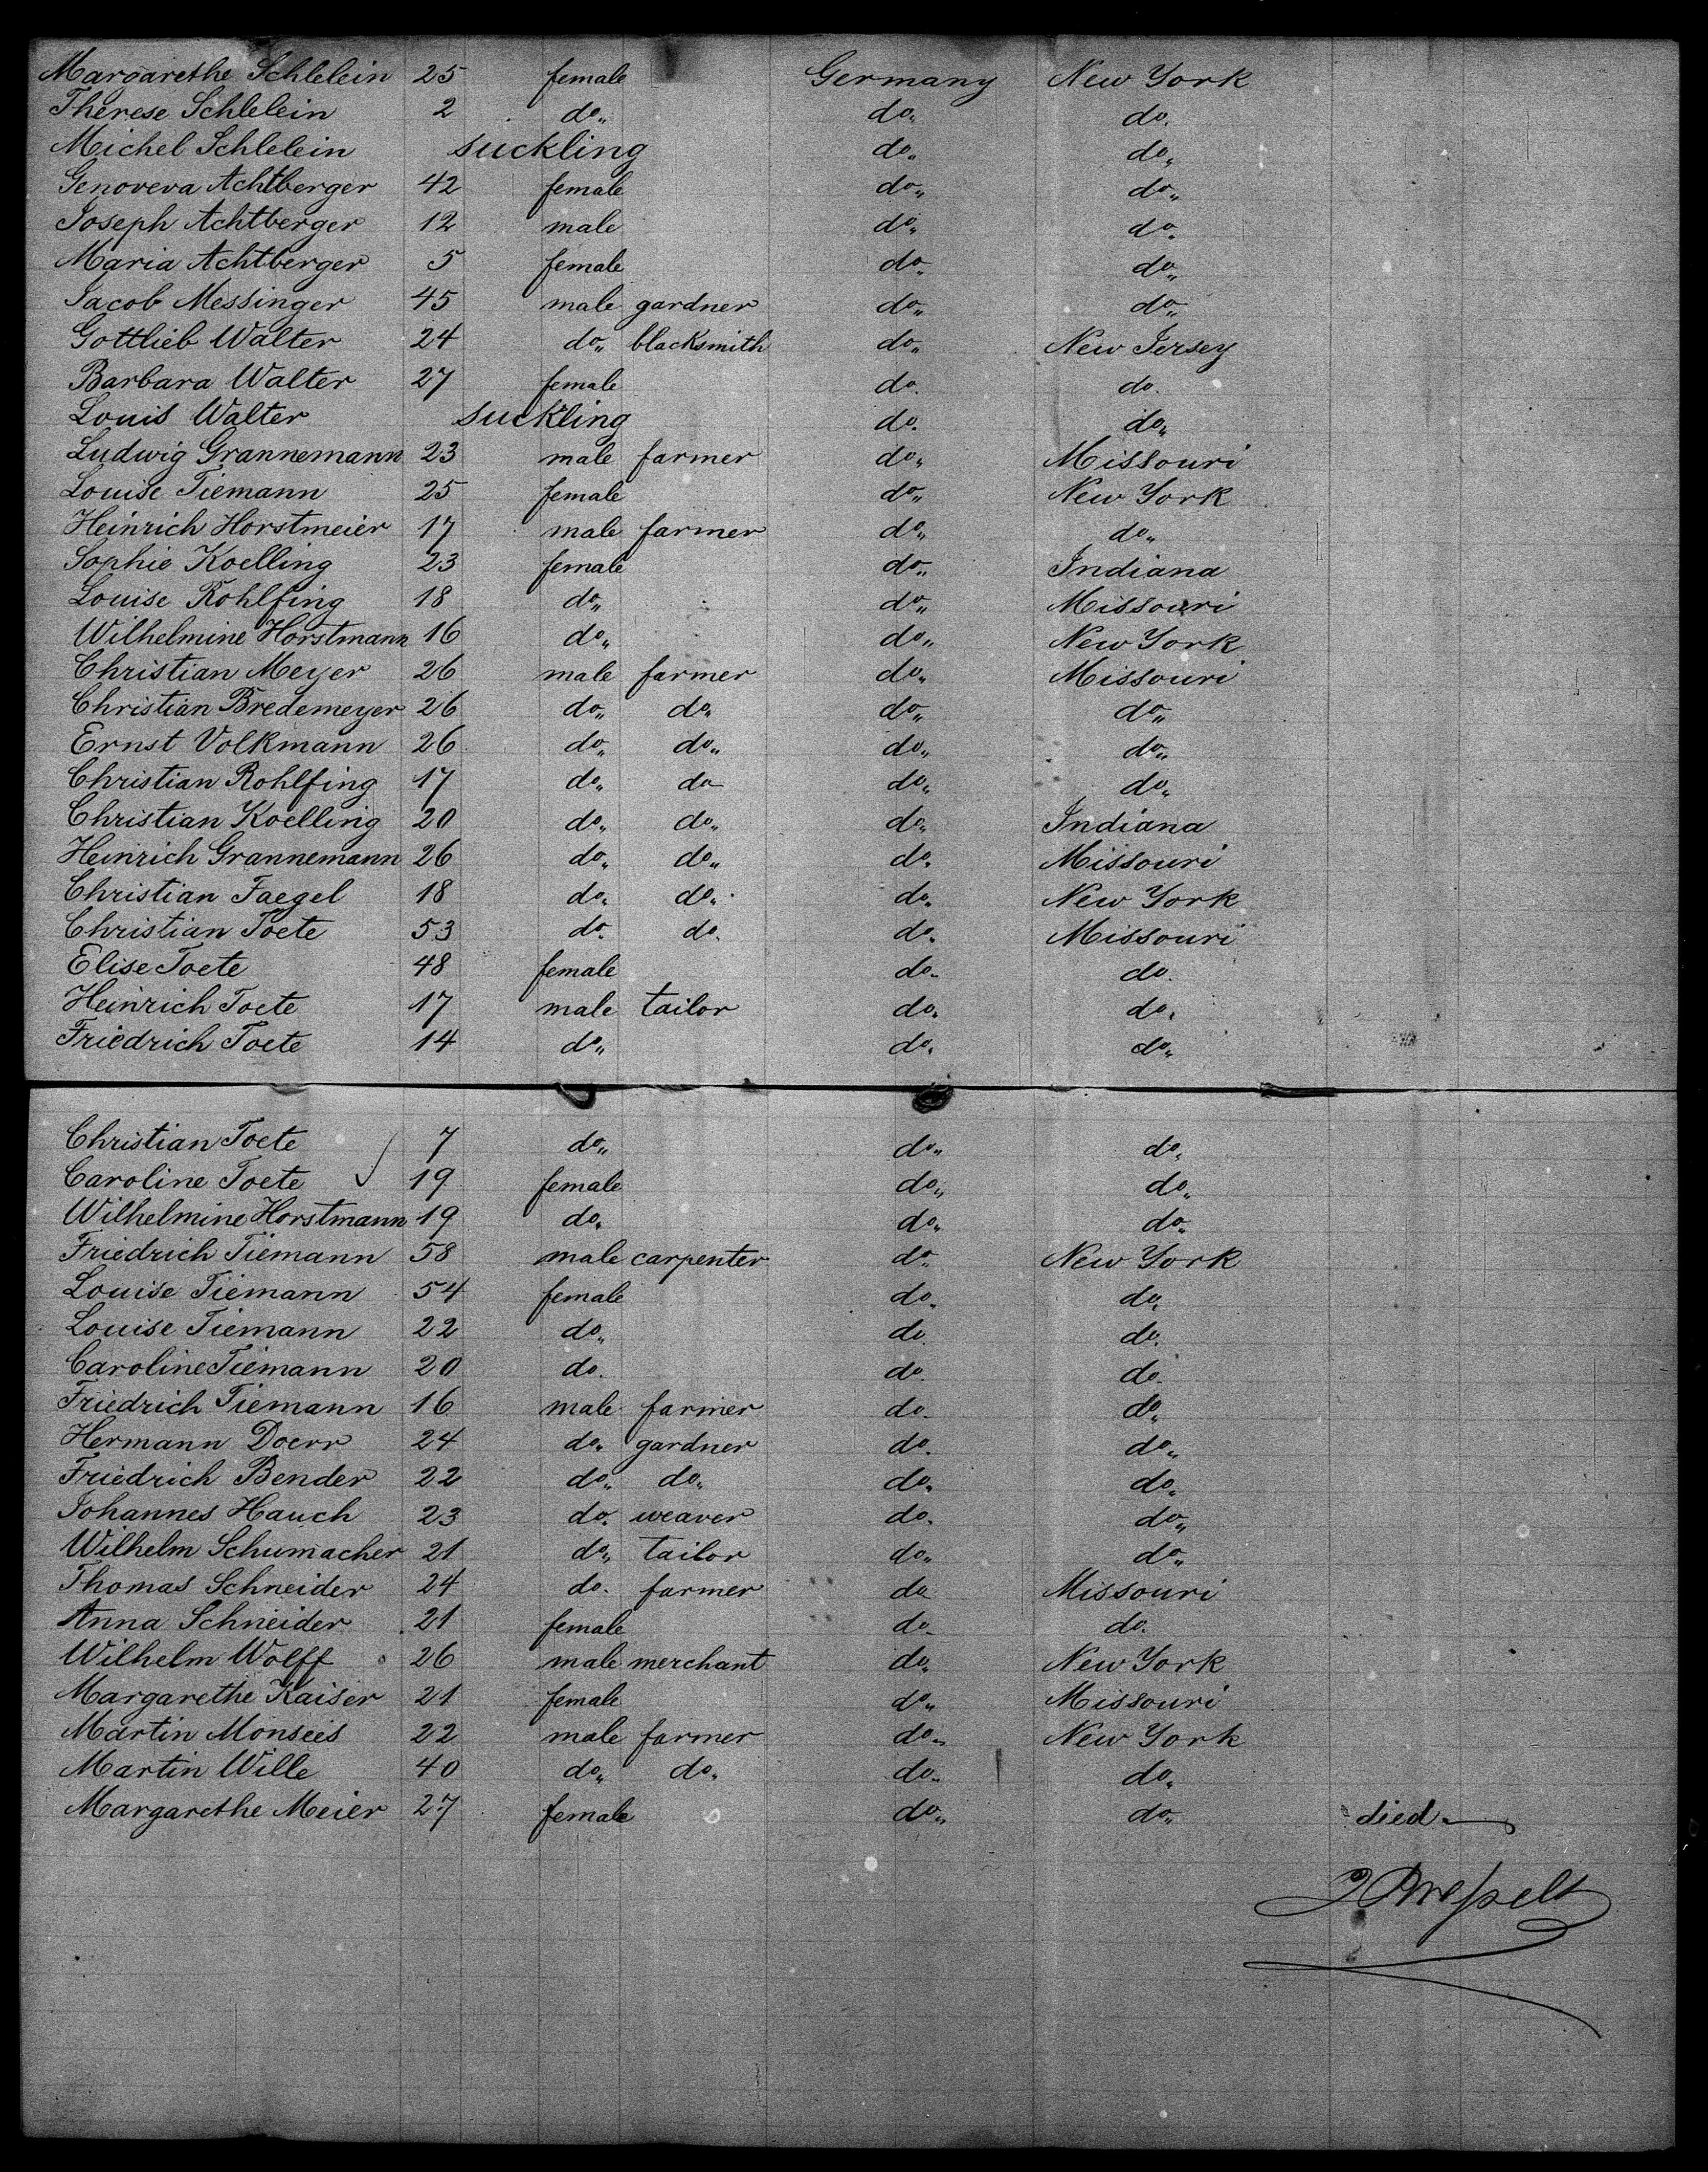 Margarethe Schlelein 25 female Germany New York
Therese Schlelein 2 do. do. do.
Michel Schlelein suckling do. do.
Genoveva Achtberger 42 female do. do.
Joseph Achtberger 12 male do. do.
Maria Achtberger 5 female do. do.
Jacob Messinger 45 male gardner do. do.
Gottlieb Walter 24 do. blacksmith do. New Jersey
Barbara Walter 27 female do. do.
Louis Walter suckling do. do.
Ludwig Grannemann 23 male farmer do. Missouri
Louise Tiemann 25 female do. New York
Heinrich Horstmeier 17 male farmer do. do.
Sophie Koelling 23 female do. Indiana
Louise Rohlfing 18 do. do. Missouri
Wilhelmine Horstmann 16 do. do. New York
Christian Meyer 26 male farmer do. Missouri
Christian Bredemeyer 26 do. do. do. do.
Ernst Volkmann 26 do. do. do. do.
Christian Rohlfing 17 do. do do. do.
Christian Koelling 20 do. do. do. Indiana
Heinrich Grannemann 26 do. do. do. Missouri
Christian Faegel 18 do. do. do. New York
Christian Toete 53 do. do. do. Missouri
Elise Toete 48 female do. do.
Heinrich Toete 17 male tailor do. do.
Friedrich Toete 14 do. do. do.
Christian Toete 7 do. do. do.
Caroline Toete 19 female do. do.
Wilhelmine Horstmann 19 do. do. do.
Friedrich Tiemann 58 male carpenter do. New York
Louise Tiemann 54 female do. do.
Louise Tiemann 22 do. do. do.
Caroline Tiemann 20 do. do. do.
Friedrich Tiemann 16 male farmer do. do.
Hermann Doerr 24 do. gardner do. do.
Friedrich Bender 22 do. do. do. do.
Johannes Hauch 23 do. weaver do. do.
Wilhelm Schumacher 21 do. tailor do. do.
Thomas Schneider 24 do. farmer do Missouri
Anna Schneider 21 female do. do.
Wilhelm Wolff 26 male merchant do. New York
Margarethe Kaiser 21 female do. Missouri
Martin Monsees 22 male farmer do. New York
Martin Wille 40 do. do. do. do.
Margarethe Meier 27 female do. do. died